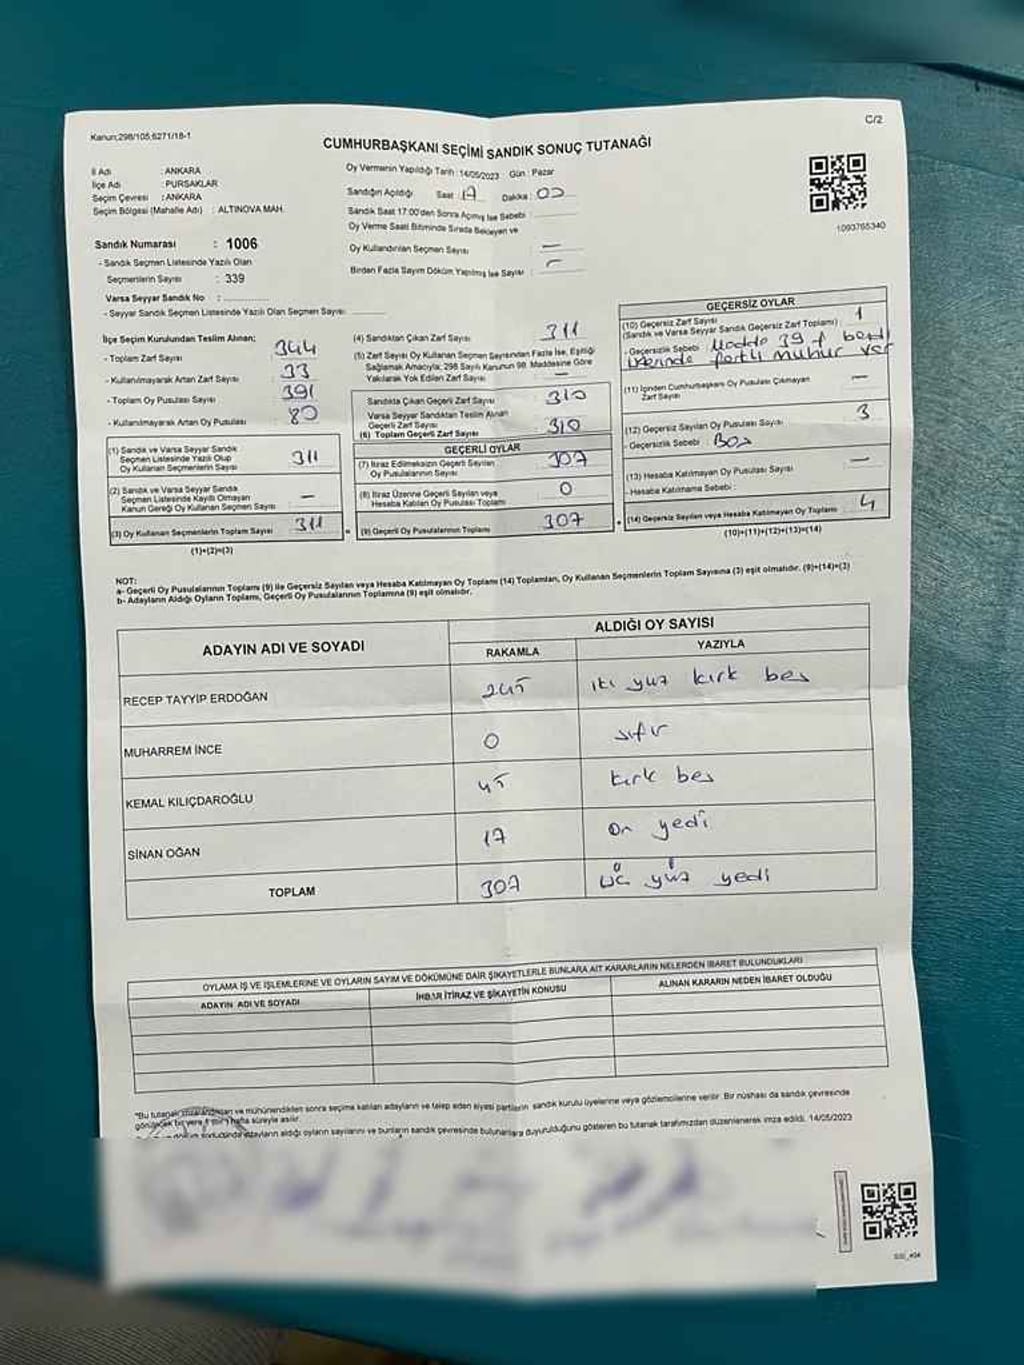 Kanun;298/105;6271/18-1
C/2
CUMHURBAŞKANI SEÇİMİ SANDIK SONUÇ TUTANAĞI
İl Adı : ANKARA
İlçe Adı : PURSAKLAR
Seçim Çevresi : ANKARA
Seçim Bölgesi (Mahalle Adı) : ALTINOVA MAH.
Sandık Numarası : 1006
- Sandık Seçmen Listesinde Yazılı Olan
Seçmenlerin Sayısı : 339
Varsa Seyyar Sandık No : ..............
- Seyyar Sandık Seçmen Listesinde Yazılı Olan Seçmen Sayısı: ..........
Oy Vermenin Yapıldığı Tarih : 14/05/2023 Gün : Pazar
Sandığın Açıldığı Saat : 17 Dakika : 00
Sandık Saat 17:00'den Sonra Açılmış İse Sebebi : ..........
Oy Verme Saati Bitiminde Sırada Bekleyen ve
Oy Kullandırılan Seçmen Sayısı : —
Birden Fazla Sayım Döküm Yapılmış İse Sayısı : —
1093765340
İlçe Seçim Kurulundan Teslim Alınan;
- Toplam Zarf Sayısı : 344
- Kullanılmayarak Artan Zarf Sayısı : 33
- Toplam Oy Pusulası Sayısı : 391
- Kullanılmayarak Artan Oy Pusulası : 80
(1) Sandık ve Varsa Seyyar Sandık
Seçmen Listesinde Yazılı Olup
Oy Kullanan Seçmenlerin Sayısı : 311
(2) Sandık ve Varsa Seyyar Sandık
Seçmen Listesinde Kayıtlı Olmayan
Kanun Gereği Oy Kullanan Seçmen Sayısı : —
(3) Oy Kullanan Seçmenlerin Toplam Sayısı : 311
(1)+(2)=(3)
(4) Sandıktan Çıkan Zarf Sayısı : 311
(5) Zarf Sayısı Oy Kullanan Seçmen Sayısından Fazla İse, Eşitliği
Sağlamak Amacıyla; 298 Sayılı Kanunun 98. Maddesine Göre
Yakılarak Yok Edilen Zarf Sayısı : —
Sandıkta Çıkan Geçerli Zarf Sayısı : 310
Varsa Seyyar Sandıktan Teslim Alınan
Geçerli Zarf Sayısı
(6) Toplam Geçerli Zarf Sayısı : 310
GEÇERLİ OYLAR
(7) İtiraz Edilmeksizin Geçerli Sayılan
Oy Pusulalarının Sayısı : 307
(8) İtiraz Üzerine Geçerli Sayılan veya
Hesaba Katılan Oy Pusulası Toplamı : 0
(9) Geçerli Oy Pusulalarının Toplamı : 307
GEÇERSİZ OYLAR
(10) Geçersiz Zarf Sayısı
(Sandık ve Varsa Seyyar Sandık Geçersiz Zarf Toplamı) : 1
- Geçersizlik Sebebi : Madde 39 f bendi
üzerinde partili mühür var
(11) İçinden Cumhurbaşkanı Oy Pusulası Çıkmayan
Zarf Sayısı : —
(12) Geçersiz Sayılan Oy Pusulası Sayısı : 3
- Geçersizlik Sebebi : Boş
(13) Hesaba Katılmayan Oy Pusulası Sayısı : —
- Hesaba Katılmama Sebebi :
(14) Geçersiz Sayılan veya Hesaba Katılmayan Oy Toplamı : 4
(10)+(11)+(12)+(13)=(14)
NOT:
a- Geçerli Oy Pusulalarının Toplamı (9) ile Geçersiz Sayılan veya Hesaba Katılmayan Oy Toplamı (14) Toplamları, Oy Kullanan Seçmenlerin Toplam Sayısına (3) eşit olmalıdır. (9)+(14)=(3)
b- Adayların Aldığı Oyların Toplamı, Geçerli Oy Pusulalarının Toplamına (9) eşit olmalıdır.
ADAYIN ADI VE SOYADI
ALDIĞI OY SAYISI
RAKAMLA YAZIYLA
RECEP TAYYİP ERDOĞAN 245 iki yüz kırk beş
MUHARREM İNCE 0 sıfır
KEMAL KILIÇDAROĞLU 45 kırk beş
SİNAN OĞAN 17 on yedi
TOPLAM 307 üç yüz yedi
OYLAMA İŞ VE İŞLEMLERİNE VE OYLARIN SAYIM VE DÖKÜMÜNE DAİR ŞİKAYETLERLE BUNLARA AİT KARARLARIN NELERDEN İBARET BULUNDUKLARI
ADAYIN ADI VE SOYADI İHBAR İTİRAZ VE ŞİKAYETİN KONUSU ALINAN KARARIN NEDEN İBARET OLDUĞU
"Bu tutanak imzalandıktan ve mühürlendikten sonra seçime katılan adayların ve talep eden siyasi partilerin sandık kurulu üyelerine veya gözlemcilerine verilir. Bir nüshası da sandık çevresinde
görülecek bir yere 1 (bir) hafta süreyle asılır.
sonucunda adayların aldığı oyların sayılarını ve bunların sandık çevresinde bulunanlara duyurulduğunu gösteren bu tutanak tarafımızdan düzenlenerek imza edildi. 14/05/2023